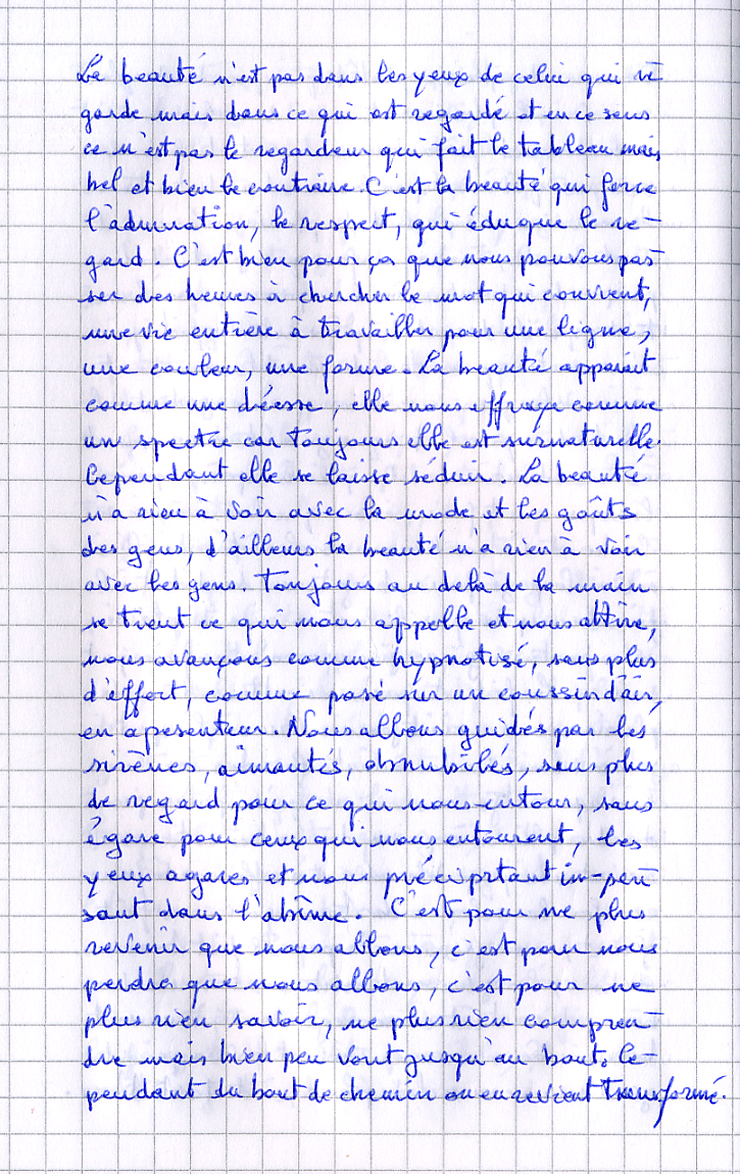 La beauté n'est pas dans les yeux de celui qui re
garde mais dans ce qui est regardé et en ce sens
ce n'est pas le regardeur qui fait le tableau mais
bel et bien le contraire. C'est la beauté qui force
l'admiration, le respect, qui éduque le re-
gard. C'est bien pour ça que nous pouvons pas
ser des heures à chercher le mot qui convient,
une vie entière à travailler pour une ligne,
une couleur, une forme. La beauté apparait
comme une déesse, elle nous effraye comme
un spectre car toujours elle est surnaturelle.
Cependant elle se laisse séduir. La beauté
n'a rien à voir avec la mode et les goûts
des gens, d'ailleurs la beauté n'a rien à voir
avec les gens. Toujours au delà de la main
se tient ce qui nous appelle et nous attire,
nous avançons comme hypnotisé, sans plus
d'effort, comme posé sur un coussin d'air,
en apesenteur. Nous allons guidés par les
sirènes, aimantés, obnubilés, sans plus
de regard pour ce qui nous entour, sans
égare pour ceux qui nous entourent, les
yeux agares et nous préciptant in-pen
sant dans l'abîme. C'est pour ne plus
revenir que nous allons, c'est pour nous
perdre que nous allons, c'est pour ne
plus rien savoir, ne plus rien compren
dre mais bien peu vont jusqu'au bout. Ce-
pendant du bout de chemin on en revient transformé.